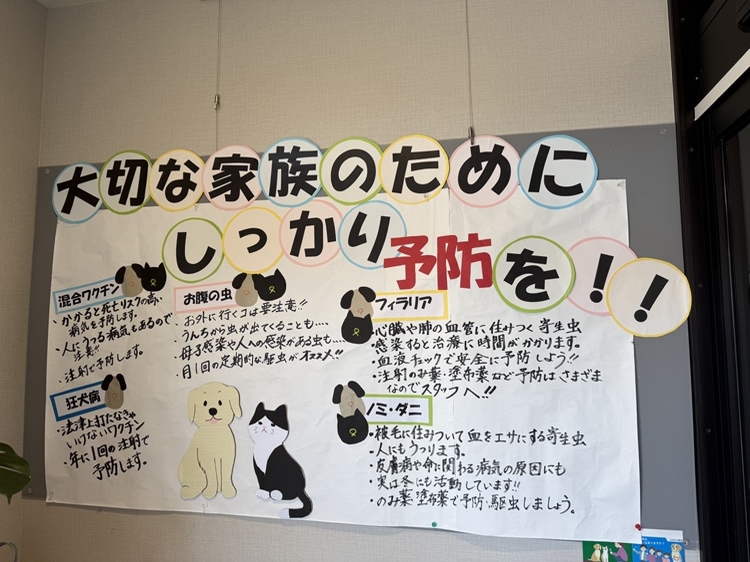 大切な家族のために
しっかり予防を!!
混合ワクチン
・かかると死亡リスクの高い
病気を予防します。
・人にうつる病気もあるので
注意!!
・注射で予防します。
狂犬病
・法律上打たなきゃ
いけないワクチン
・年に1回の注射で
予防します。
お腹の虫
・お外に行くコは要注意!!
・うんちから虫が出てくることも....
・母子感染や人への感染がある虫も....
・月1回の定期的な駆虫がオススメ!!
フィラリア
・心臓や肺の血管に住みつく寄生虫
・感染すると治療に時間がかかります。
・血液チェックで安全に予防しよう!!
・注射のみ薬・塗布薬など予防はさまざま
なのでスタッフへ!!
ノミ・ダニ
・被毛に住みついて血をエサにする寄生虫
・人にもうつります。
・皮膚病や命に関わる病気の原因にも
・実は冬にも活動しています!!
・のみ薬・塗布薬で予防・駆虫しましょう。